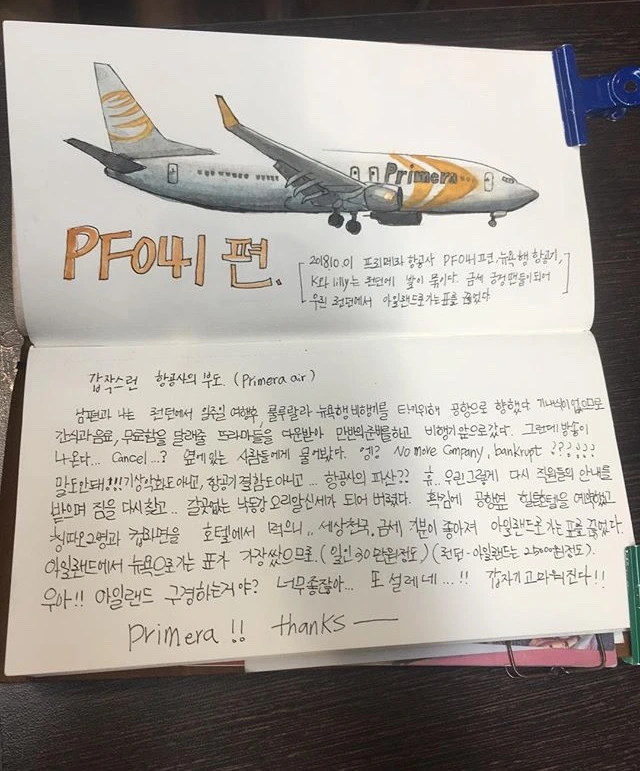 Primera
PF041 편.
2018.10.01 프리메라 항공사 PF041편, 뉴욕행 항공기,
K와 lilly는 런던에 발이 묶이다. 금세 긍정팬들이되어
우린 런던에서 아일랜드로가는 표를 끊었다
갑작스런 항공사의 부도. (Primera air)
남편과 나는 런던에서 일주일 여행후, 룰루랄라 뉴욕행 비행기를 타기위해 공항으로 향했다. 기내식이 없으므로
간식과 음료, 무료함을 달래줄 드라마들을 다운받아 만반의준비를하고 비행기앞으로갔다. 그런데 방송이
나온다... Cancel...? 옆에있는 사람들에게 물어봤다. 엥? No more Company, bankrupt ??????
말도안돼!!! 기상악화도아니고, 항공기결함도아니고... 항공사의 파산?? 휴.. 우린그렇게 다시 직원들의 안내를
받으며 짐을 다시찾고.. 갈곳없는 낙동강 오리알신세가 되어 버렸다. 홧김에 공항옆 힐튼호텔을 예약하고
칭따오2병과 컵라면을 호텔에서 먹으니.. 세상천국, 금세 기분이 좋아져 아일랜드로가는 표를 끊었다.
아일랜드에서 뉴욕으로가는 표가 가장쌌으므로. (일인 30만원정도) (런던-아일랜드는 25000원정도).
우아!! 아일랜드 구경하는거야? 너무좋잖아... 또 설레네...!! 갑자기 고마워진다!!
Primera !! thanks